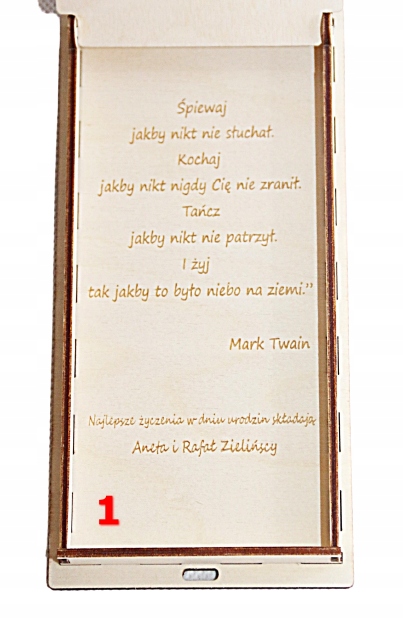 Śpiewaj
jakby nikt nie słuchał.
Kochaj
jakby nikt nigdy Cię nie zranił.
Tańcz
jakby nikt nie patrzył.
I żyj
tak jakby to było niebo na ziemi.”
Mark Twain
Najlepsze życzenia w dniu urodzin składają
Aneta i Rafał Zielińscy
1